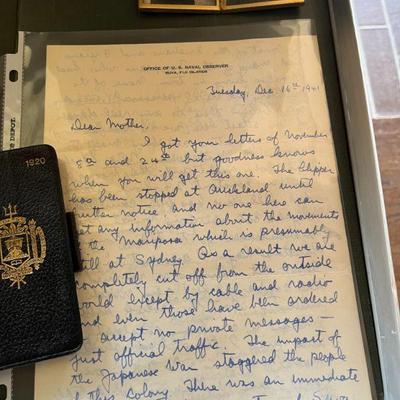 OFFICE OF U. S. NAVAL OBSERVER
SUVA, FIJI ISLANDS
Tuesday, Dec 16th 1941
Dear Mother,
I got your letters of November
8th and 24th but goodness knows
when you will get this one. The Clipper
has been stopped at Auckland until
further notice, and no one here can
get any information about the movements
of the Mariposa which is presumably
still at Sydney. As a result we are
completely cut off from the outside
world except by cable and radio
and even those have been ordered
to accept no private messages —
just official traffic. The impact of
the Japanese War staggered the people
of this Colony. There was an immediate
1920
DEPOT.